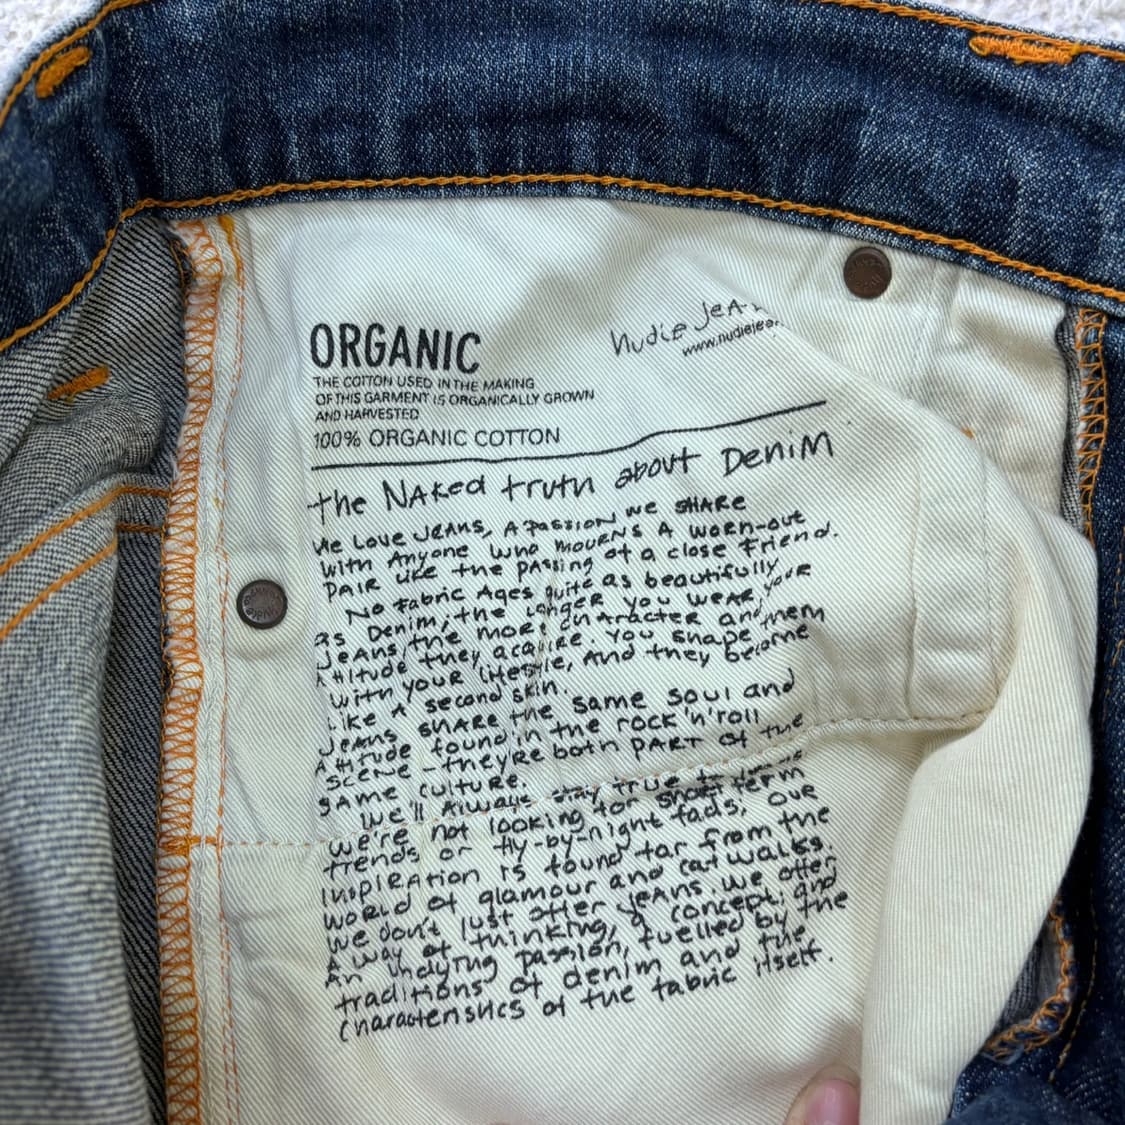 ORGANIC
THE COTTON USED IN THE MAKING
OF THIS GARMENT IS ORGANICALLY GROWN
AND HARVESTED
100% ORGANIC COTTON
Nudie JeA
www.nudiejea
the NAKed truth about DeniM
We Love JEANS, A PASSION we SHARE
with Anyone who mourns A worn-out
PAIR LIKE the PAssing of a close Friend.
No Fabric Ages quite as beautifully
as Denim, the longer you wear your
JeAns, the more character and
Attitude they acquire. You shape them
with your lifestyle, And they become
Like A second skin.
JeAns SHARE the same soul and
Attitude found in the rock'n'roll
scene - they're both PART of the
SAME culture.
We'll Always stay true to
We're not looking for short term
trends or fly-by-night fads; our
InspiRAtion is found far from the
world of glamour and catwalks.
We don't just offer JeAns. We offer
A way of thinking, a concept; and
An undying passion, fuelled by the
traditions of denim and the
characteristics of the fabric itself.